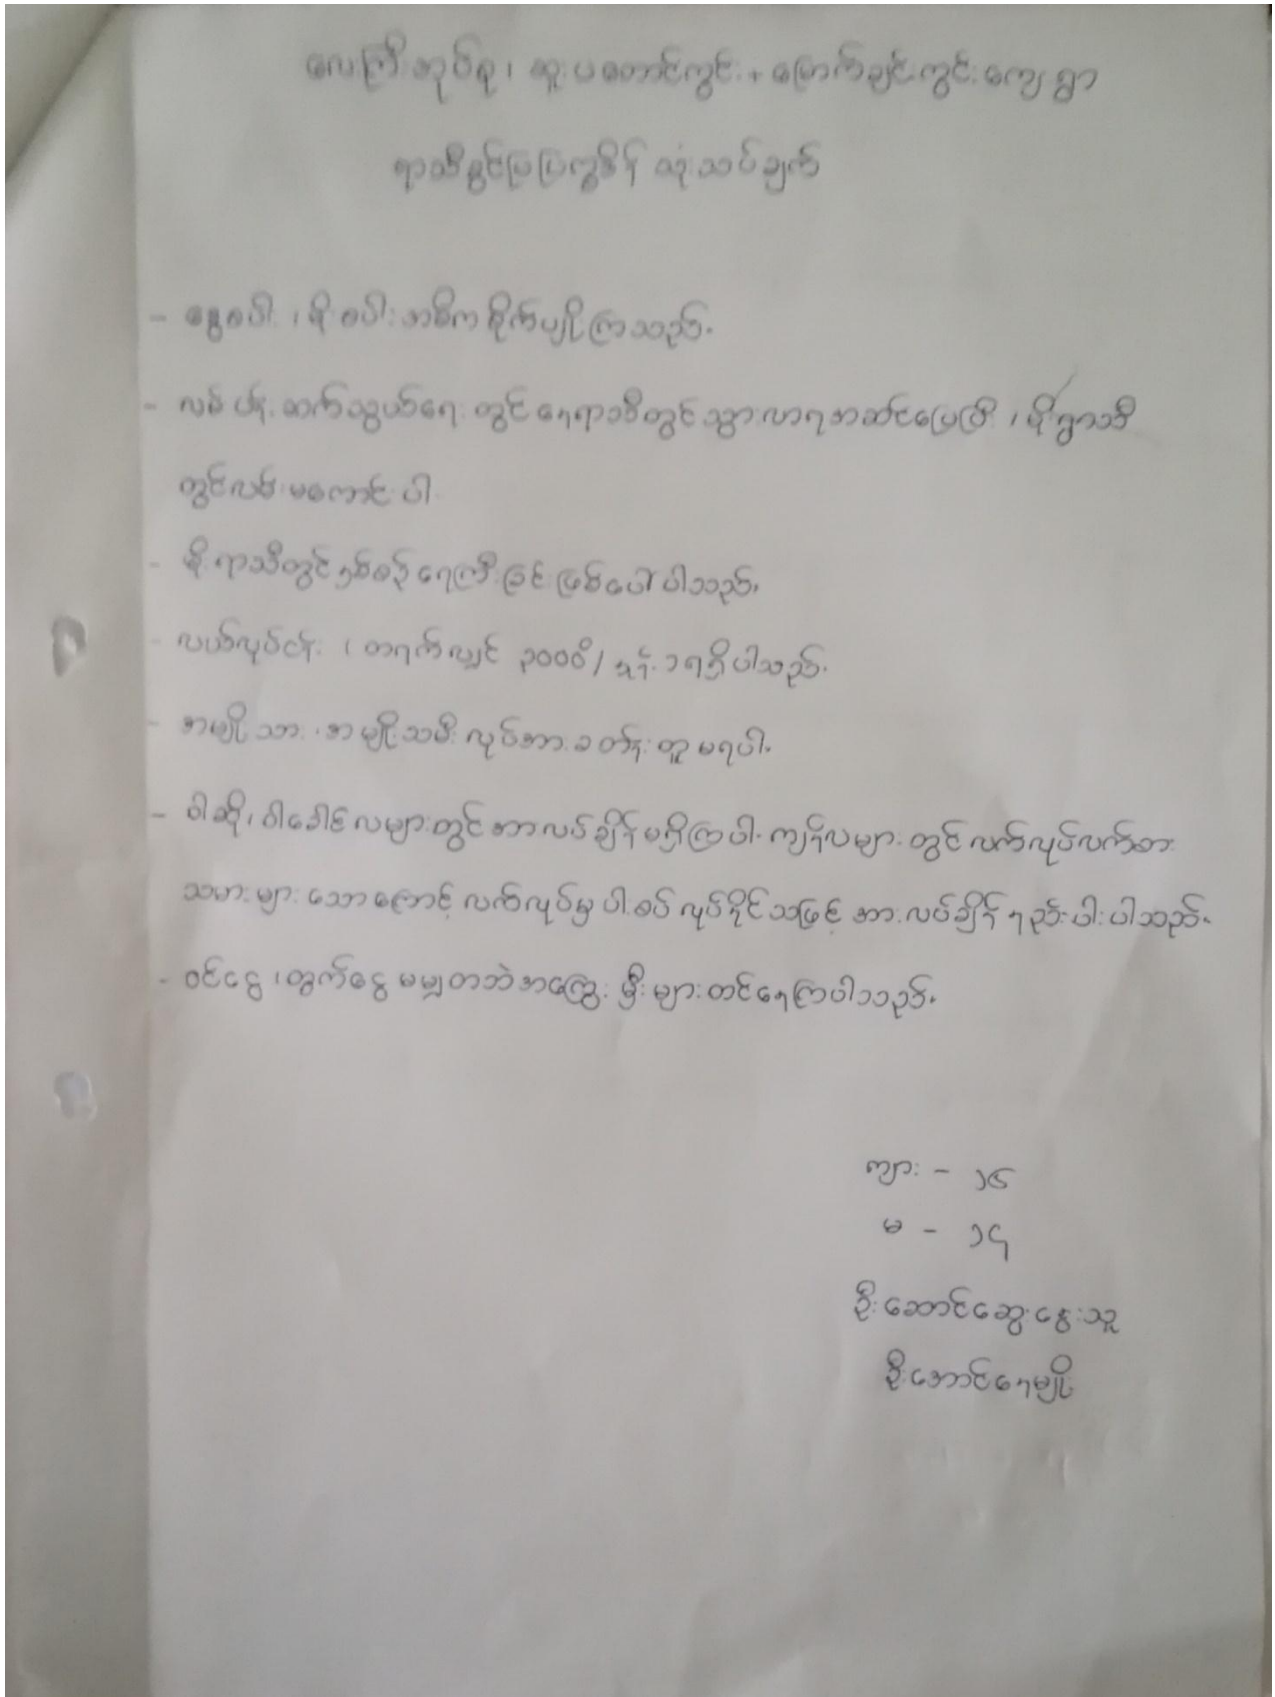 လေကြီးအုပ်စု၊ ဆူးပတောင်ကွင်း + မြောက်ချင်းကွင်းကျေးရွာ
ရာသီခွင်ပြပြက္ခဒိန် သုံးသပ်ချက်
- နွေစပါး၊ မိုးစပါးအဓိကစိုက်ပျိုးကြသည်။
- လမ်းပန်းဆက်သွယ်ရေးတွင်နွေရာသီတွင်သွားလာရအဆင်ပြေပြီး၊ မိုးရာသီ
တွင်လမ်းမကောင်းပါ
- မိုးရာသီတွင်နှစ်စဉ်ရေကြီးခြင်းဖြစ်ပေါ်ပါသည်။
- လယ်လုပ်ငန်း (တရက်လျှင် ၃၀၀၀ိ/ နှုန်း) ရရှိပါသည်။
- အမျိုးသား၊ အမျိုးသမီးလုပ်အားခတန်းတူမရပါ။
- ဝါဆို၊ ဝါခေါင်လများတွင်အားလပ်ချိန်မရှိကြပါ။ ကျန်လများတွင်လက်လုပ်လက်စား
သမားများသောကြောင့်လက်လုပ်မှပါးစပ်လှုပ်နိုင်သဖြင့်အားလပ်ချိန်နည်းပါးပါသည်။
- ဝင်ငွေ၊ ထွက်ငွေမမျှတဘဲအကြွေးမြီများတင်နေကြပါသည်။
ကျား - ၁၆
မ - ၁၄
ဦးဆောင်ဆွေးနွေးသူ
ဦးအောင်နေမျိုး